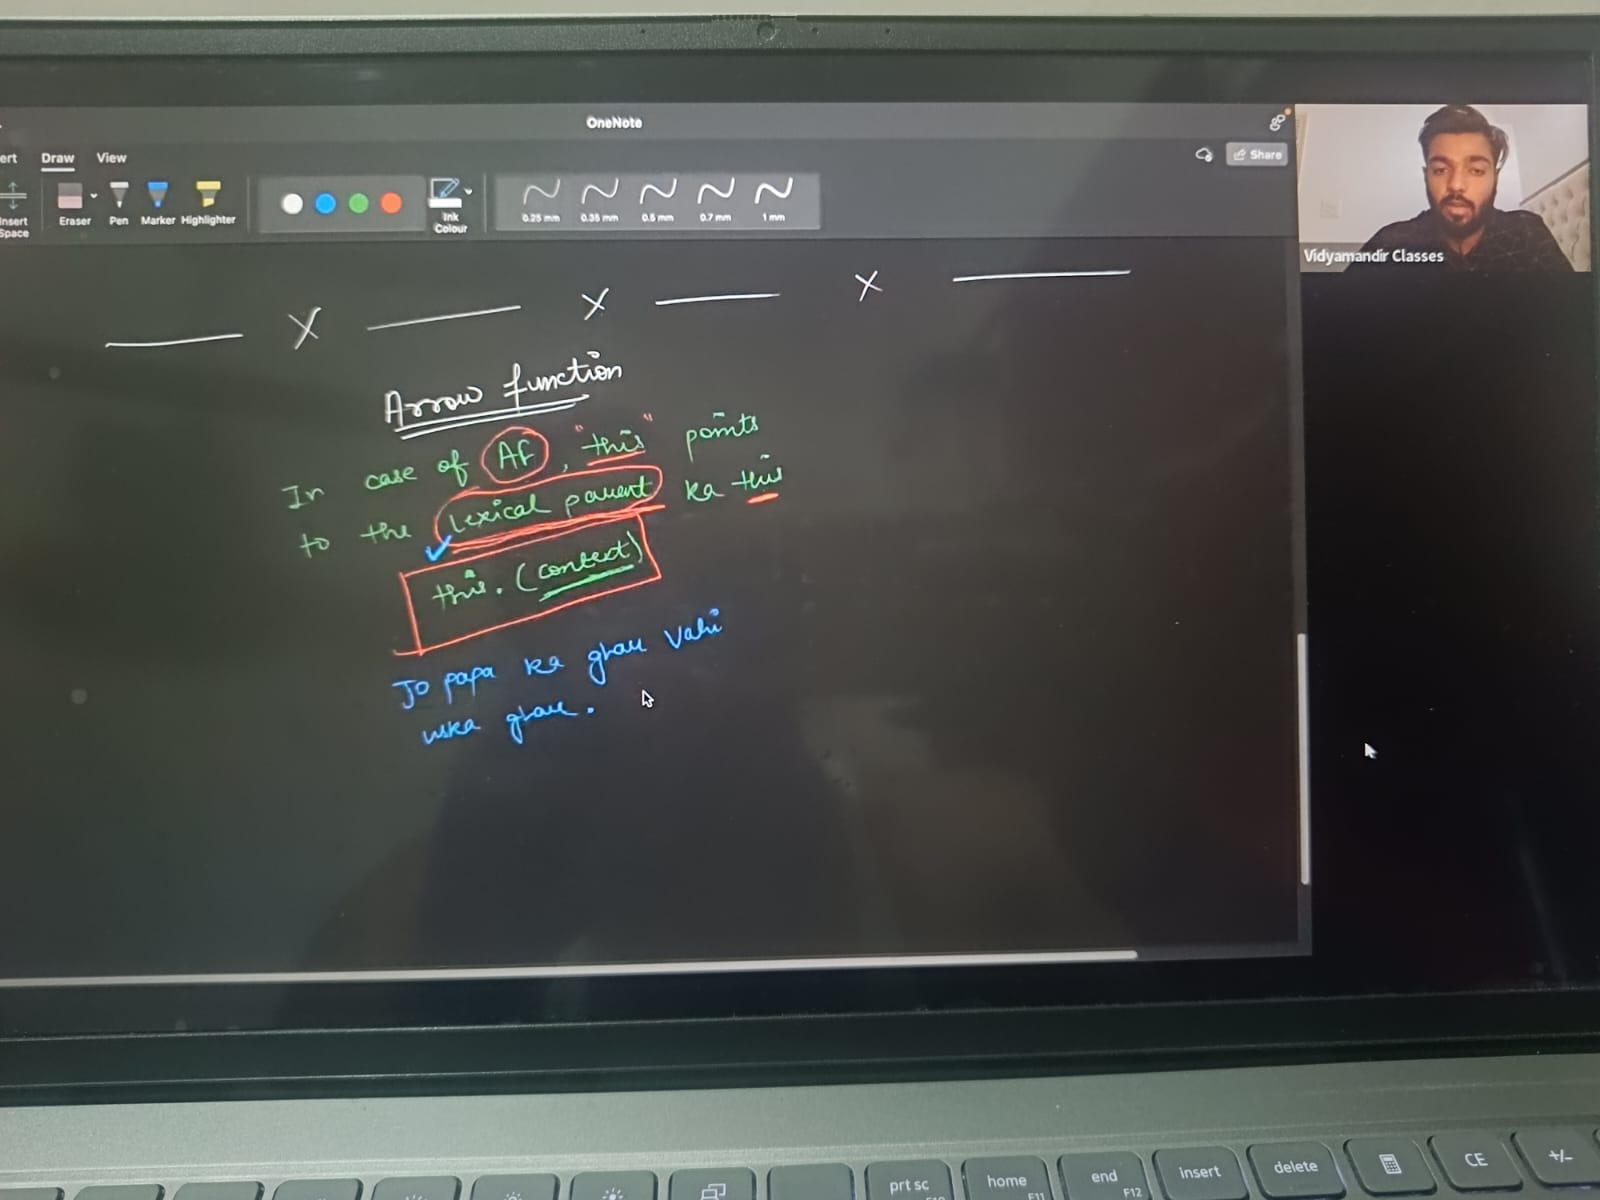 OneNote
ert Draw View
Share
Insert Space
Eraser Pen Marker Highlighter
Ink Colour
0.25 mm 0.35 mm 0.5 mm 0.7 mm 1 mm
Vidyamandir Classes
X X X
Arrow function
In case of AF, "this" points
to the lexical parent ka this
this. (context)
Jo papa ka ghar vahi
uska ghar.
prt sc F10
home F11
end F12
insert
delete
CE
+/-